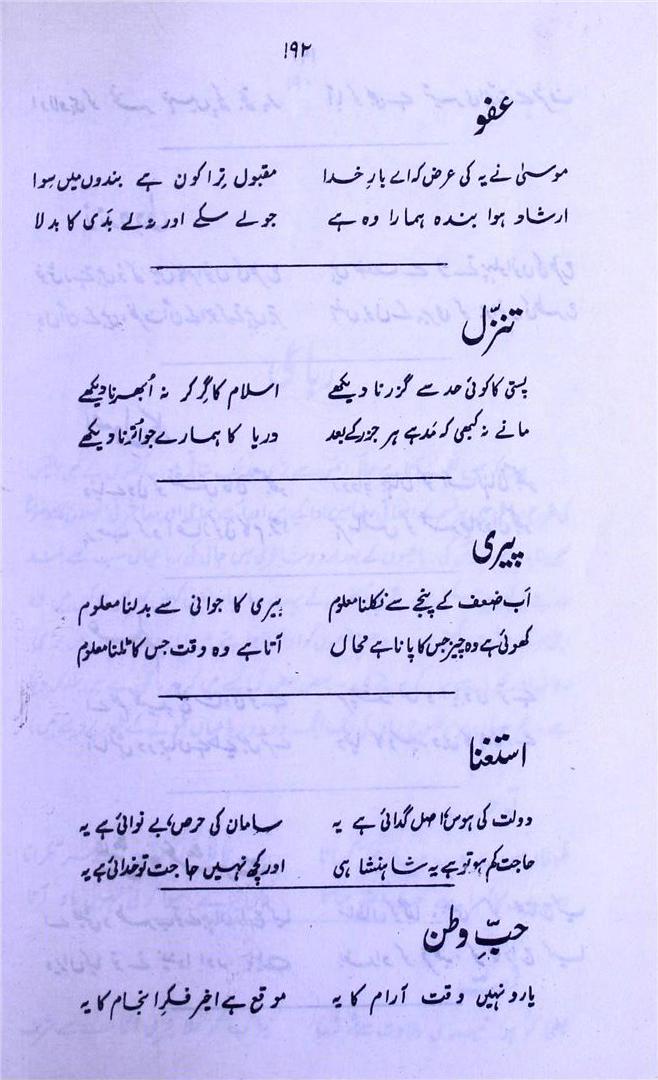 ۱۹۲
عفو
موسیٰ نے یہ کی عرض کہ اے بارِ خدا مقبول تِرا کون ہے بندوں میں سِوا
ارشاد ہوا بندہ ہمارا وہ ہے جو لے سکے اور نہ لے بَدی کا بدلا
تنزّل
پستی کا کوئی حد سے گزرنا دیکھے اسلام کا گِر کر نہ اُبھرنا دیکھے
مانے نہ کبھی کہ مَد ہے ہر جزر کے بعد دریا کا ہمارے جو اُترنا دیکھے
پیری
اَب ضعف کے پنجے سے نکلنا معلوم پیری کا جوانی سے بدلنا معلوم
کھوئی ہے وہ چیز جس کا پانا ہے محال آتا ہے وہ وقت جس کا ٹلنا معلوم
استغنا
دولت کی ہوس اصل گدائی ہے یہ سامان کی حرص بے نوائی ہے یہ
حاجت کم ہو تو ہے یہ شاہنشاہی اور کچھ نہیں حاجت تو خدائی ہے یہ
حبِّ وطن
یارو نہیں وقت آرام کا یہ موقع ہے اخیر فکرِ انجام کا یہ